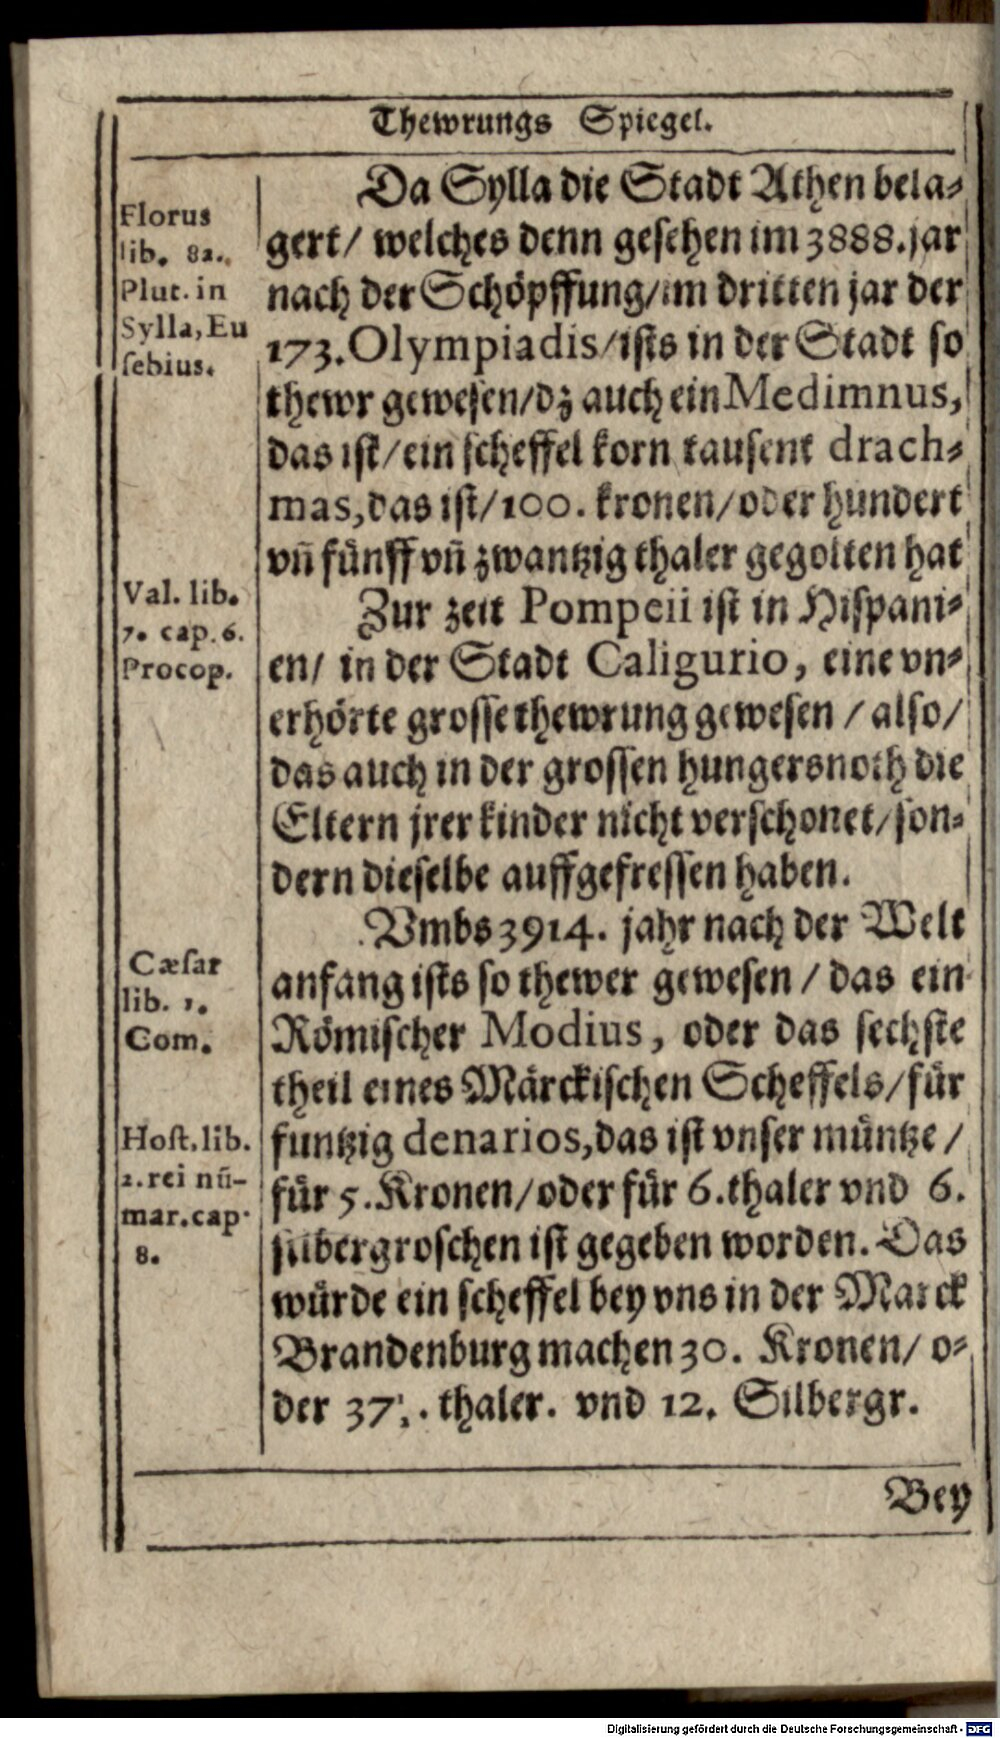 Thewrungs Spiegel.
Florus
lib. 82.
Plut. in
Sylla, Eu
ſebius.
Da Sylla die Stadt Athen bela⸗
gert/ welches denn geſchen im 3888. jar
nach der Schöpffung/im dritten jar der
173. Olympiadis/iſts in der Stadt ſo
thewr geweſen/dz auch ein Medimnus,
das iſt/ein ſcheffel korn tauſent drach⸗
mas, das iſt/100. kronen/oder hundert
vn̄ fünff vn̄ zwantzig thaler gegolten hat
Val. lib.
7. cap. 6.
Procop.
Zur zeit Pompeii iſt in Hiſpani⸗
en/ in der Stadt Caligurio, eine vn⸗
erhörte groſſe thewrung geweſen / alſo/
das auch in der groſſen hungersnoth die
Eltern jrer kinder nicht verſchonet/ſon⸗
dern dieſelbe auffgefreſſen haben.
Cæſar
lib. 1.
Com.
Vmbs 3914. jahr nach der Welt
anfang iſts ſo thewer geweſen / das ein
Römiſcher Modius, oder das ſechſte
theil eines Märckiſchen Scheffels/für
Hoſt. lib.
2. rei nū-
mar. cap.
8.
funtzig denarios, das iſt vnſer müntze /
für 5. Kronen/oder für 6. thaler vnd 6.
ſilbergroſchen iſt gegeben worden. Das
würde ein ſcheffel bey vns in der Marck
Brandenburg machen 30. Kronen/ o⸗
der 37. thaler. vnd 12. Silbergr.
Bey
Digitalisierung gefördert durch die Deutsche Forschungsgemeinschaft - DFG